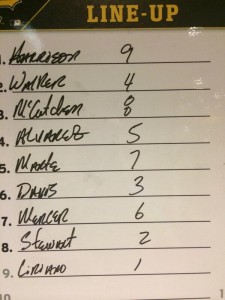 LINE-UP
1. HARRISON 9
2. WALKER 4
3. McCutchen 8
4. ALVAREZ 5
5. MARTE 7
6. DAVIS 3
7. MERCER 6
8. Stewart 2
9. LIRIANO 1
10